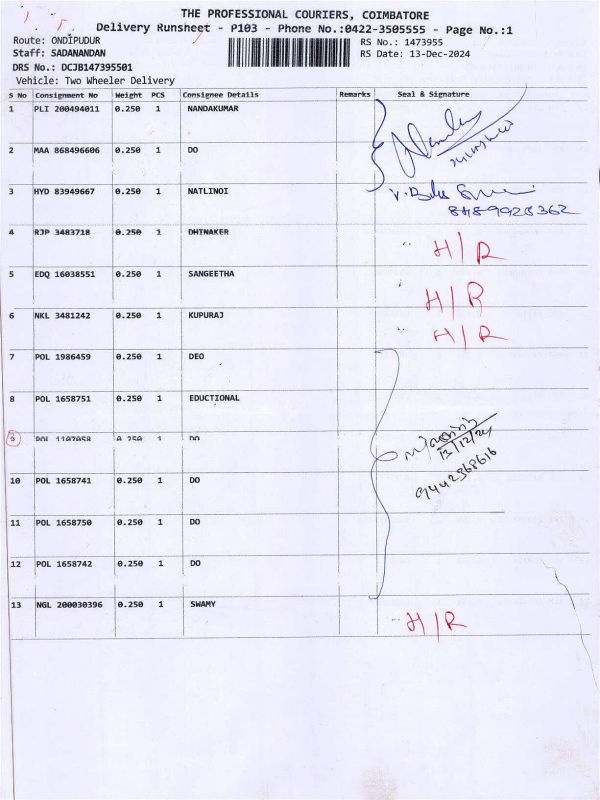 THE PROFESSIONAL COURIERS, COIMBATORE
Delivery Runsheet - P103 - Phone No.:0422-3505555 - Page No.:1
Route: ONDIPUDUR RS No.: 1473955
Staff: SADANANDAN RS Date: 13-Dec-2024
DRS No.: DCJB147395501
Vehicle: Two Wheeler Delivery
S No Consignment No Weight PCS Consignee Details Remarks Seal & Signature
1 PLI 200494011 0.250 1 NANDAKUMAR
2 MAA 868496606 0.250 1 DO
3 HYD 83949667 0.250 1 NATLINOI
4 RJP 3483718 0.250 1 DHINAKER H/R
5 EDQ 16038551 0.250 1 SANGEETHA H/R
6 NKL 3481242 0.250 1 KUPURAJ H/R
7 POL 1986459 0.250 1 DEO
8 POL 1658751 0.250 1 EDUCTIONAL
9 POL 1107058 0.250 1 DO
13/12/24
9442368616
10 POL 1658741 0.250 1 DO
11 POL 1658750 0.250 1 DO
12 POL 1658742 0.250 1 DO
13 NGL 200030396 0.250 1 SWAMY H/R